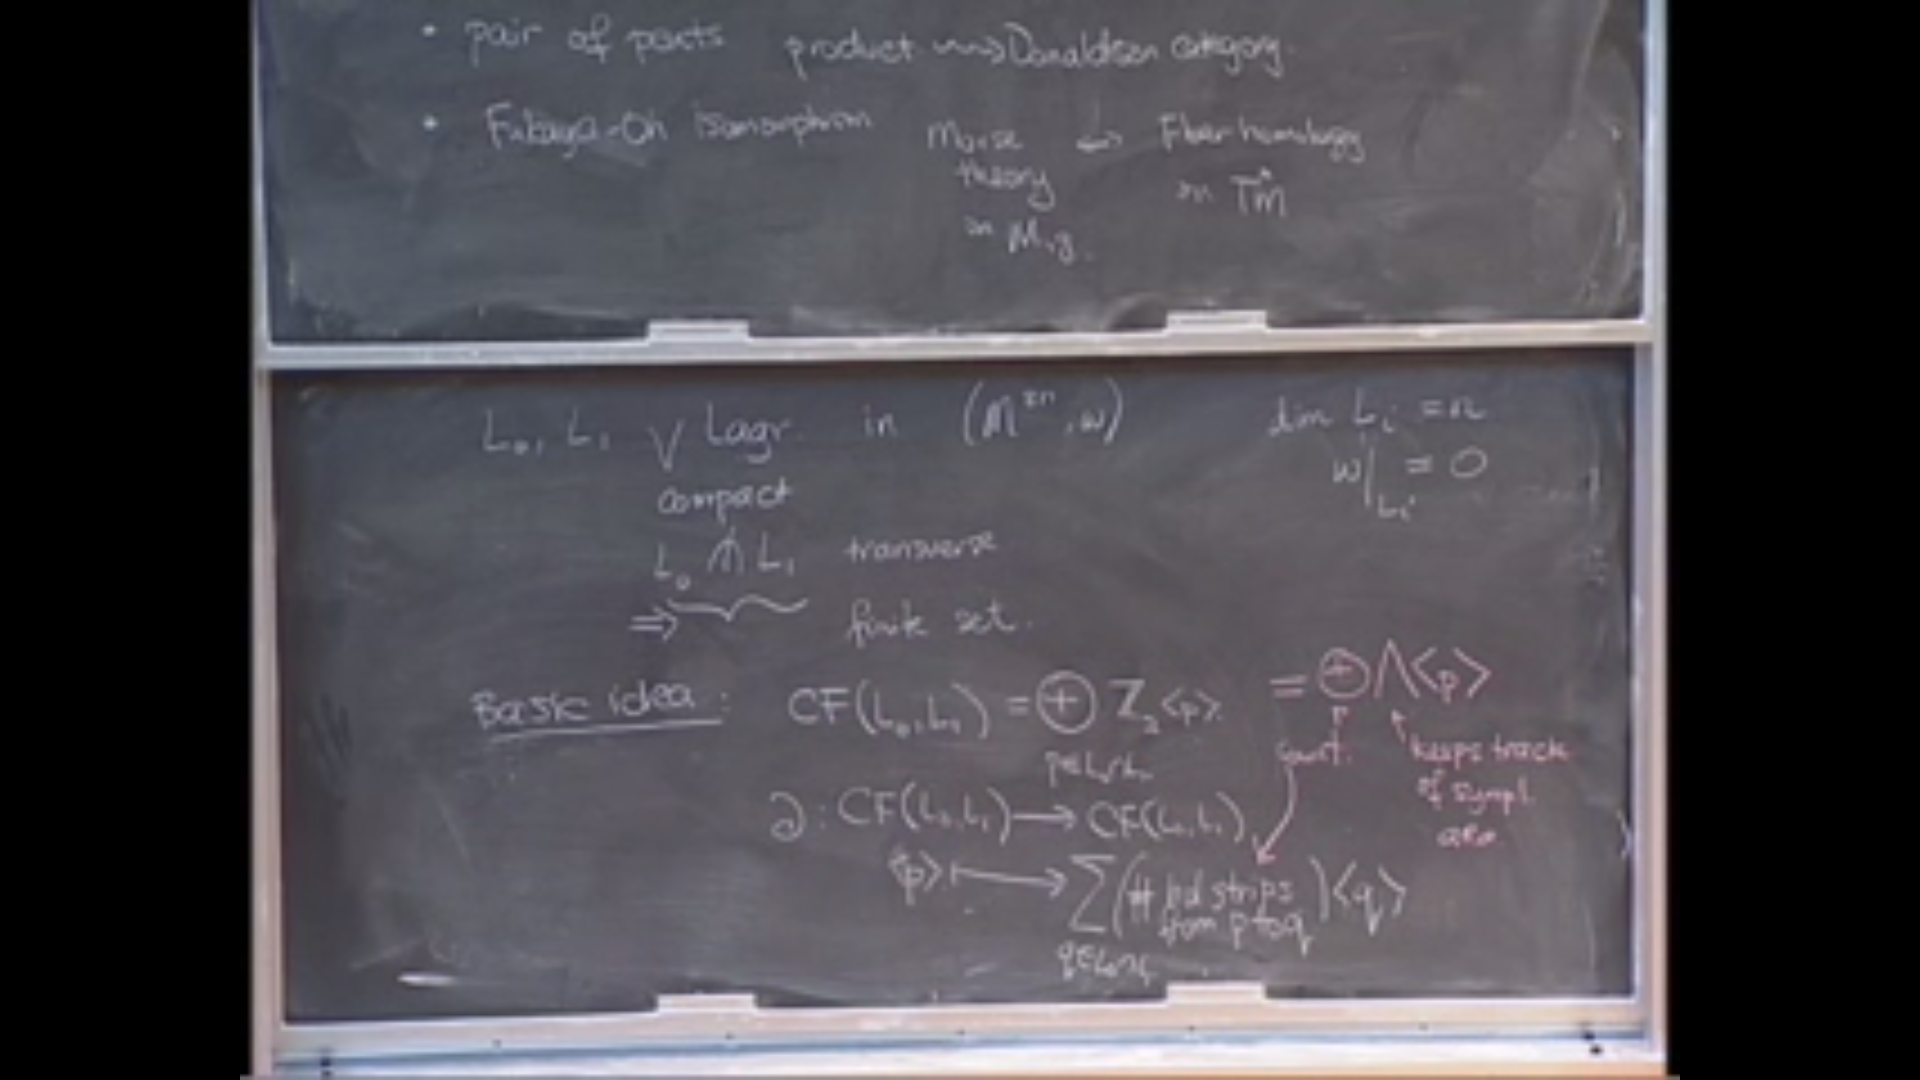 • pair of pants product ⇝ Donaldson category.
• Fukaya-Oh isomorphism Morse theory on M, g. ↔ Floer homology on T*M
L₀, L₁ ∨ Lagr. in (M²ⁿ, ω) dim Lᵢ = n
compact ω|_Lᵢ = 0
L₀ ⋔ L₁ transverse
⇒ finite set.
Basic idea: CF(L₀, L₁) = ⊕ Z₂<p>. = ⊕Λ<p>
p∈L₀∩L₁ keeps track of sympl. area
∂ : CF(L₀, L₁) → CF(L₀, L₁)
<p> ↦ Σ (# hol strips from p to q) <q>
q∈L₀∩L₁